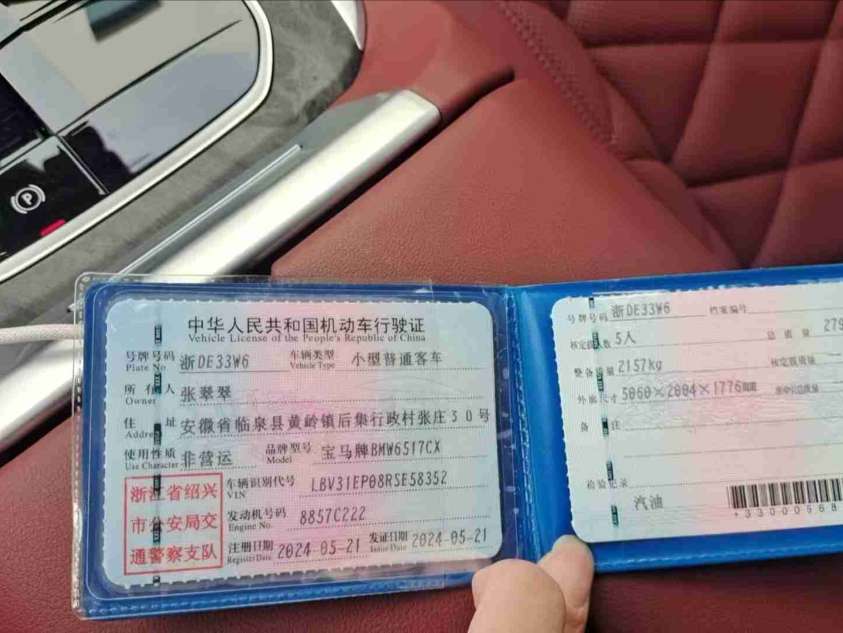 中华人民共和国机动车行驶证
Vehicle License of the People's Republic of China
号牌号码 浙DE33W6 车辆类型 小型普通客车
Plate No. Vehicle Type
所有人 张翠翠
Owner
住址 安徽省临泉县黄岭镇后集行政村张庄50号
Address
使用性质 非营运 品牌型号 宝马牌BMW6517CX
Use Character Model
浙江省绍兴
市公安局交
通警察支队
车辆识别代号 LBV31EP08RSE58352
VIN
发动机号码 8857C222
Engine No.
注册日期 2024-05-21 发证日期 2024-05-21
Register Date Issue Date
号牌号码 浙DE33W6 档案编号
核定载人数 5人 总质量 279
整备质量 2157kg 核定载质量
外廓尺寸 5060×2004×1776
备注
检验记录
汽油
P